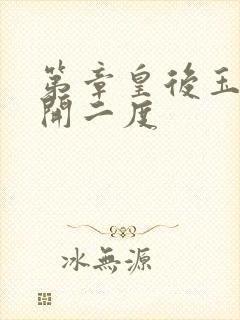 第章皇後玉
開二度
冰無源